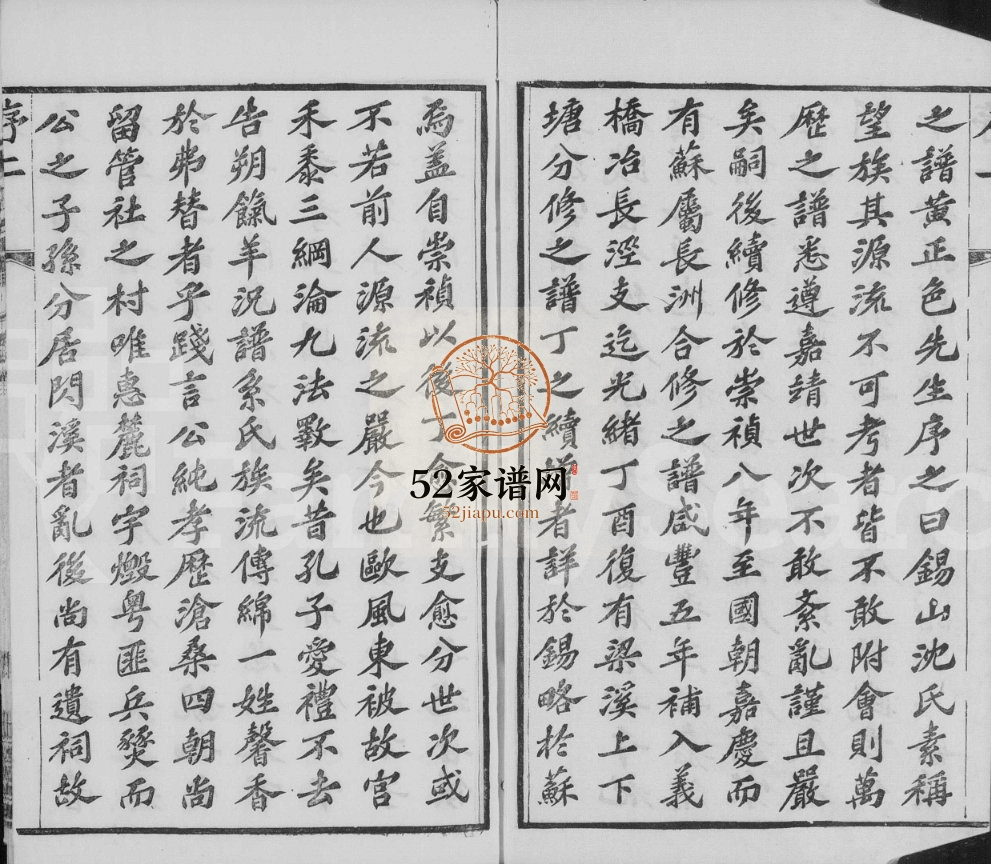 之譜黃正色先生序之曰錫山沈氏素稱
望族其源流不可考者皆不敢附會則萬
歷之譜悉遵嘉靖世次不敢紊亂謹且嚴
矣嗣後續修於崇禎八年至國朝嘉慶而
有蘇屬長洲合修之譜咸豐五年補入義
橋冶長涇支迄光緒丁酉復有梁溪上下
塘分修之譜丁之續者詳於錫略於蘇
焉蓋自崇禎以後丁愈繁支愈分世次或
不若前人源流之嚴今也歐風東被故宮
禾黍三綱淪九法斁矣昔孔子愛禮不去
告朔餼羊況譜系氏族流傳綿一姓馨香
於弗替者乎踐言公純孝歷滄桑四朝尚
留管社之村唯惠麓祠宇燬粵匪兵燹而
公之子孫分居閃溪者亂後尚有遺祠故
序二
52家谱网
52jiapu.com